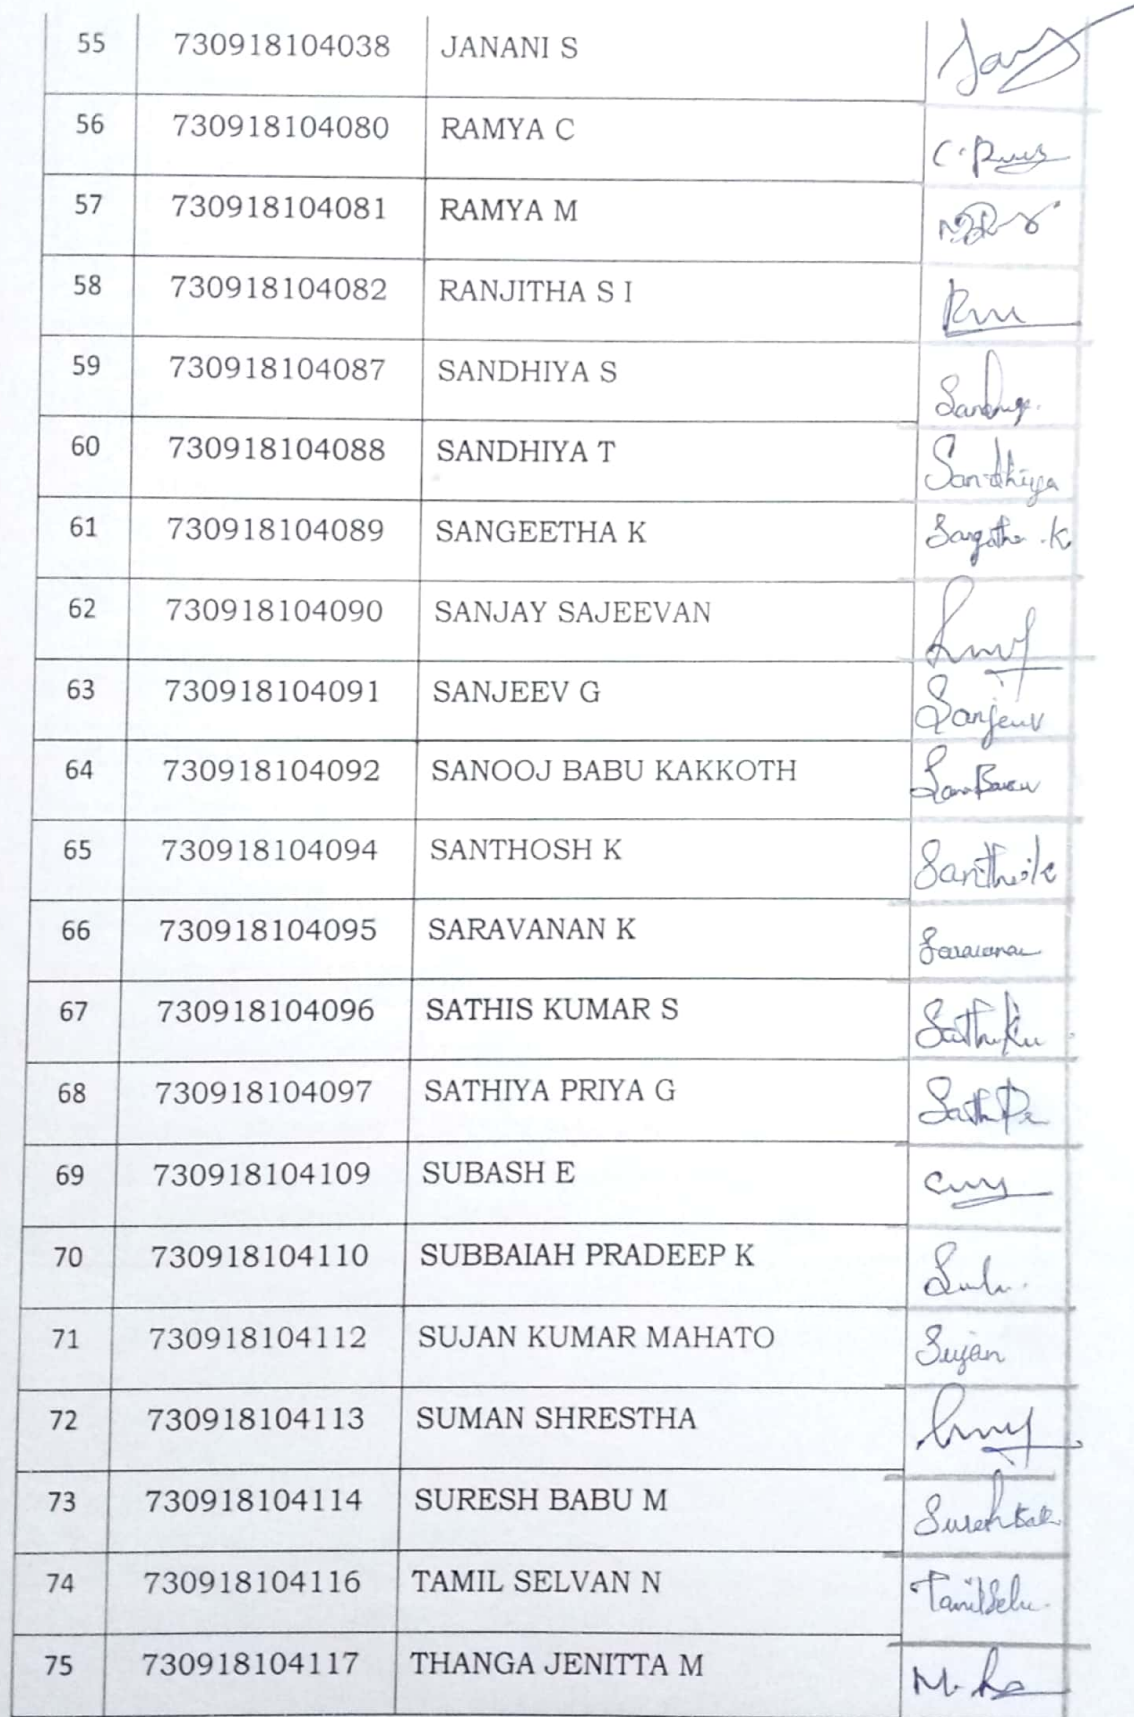 55 730918104038 JANANI S
56 730918104080 RAMYA C
57 730918104081 RAMYA M
58 730918104082 RANJITHA S I
59 730918104087 SANDHIYA S
60 730918104088 SANDHIYA T Sandhiya
61 730918104089 SANGEETHA K
62 730918104090 SANJAY SAJEEVAN
63 730918104091 SANJEEV G Sanjeev
64 730918104092 SANOOJ BABU KAKKOTH
65 730918104094 SANTHOSH K
66 730918104095 SARAVANAN K
67 730918104096 SATHIS KUMAR S
68 730918104097 SATHIYA PRIYA G
69 730918104109 SUBASH E
70 730918104110 SUBBAIAH PRADEEP K
71 730918104112 SUJAN KUMAR MAHATO Sujan
72 730918104113 SUMAN SHRESTHA
73 730918104114 SURESH BABU M
74 730918104116 TAMIL SELVAN N
75 730918104117 THANGA JENITTA M